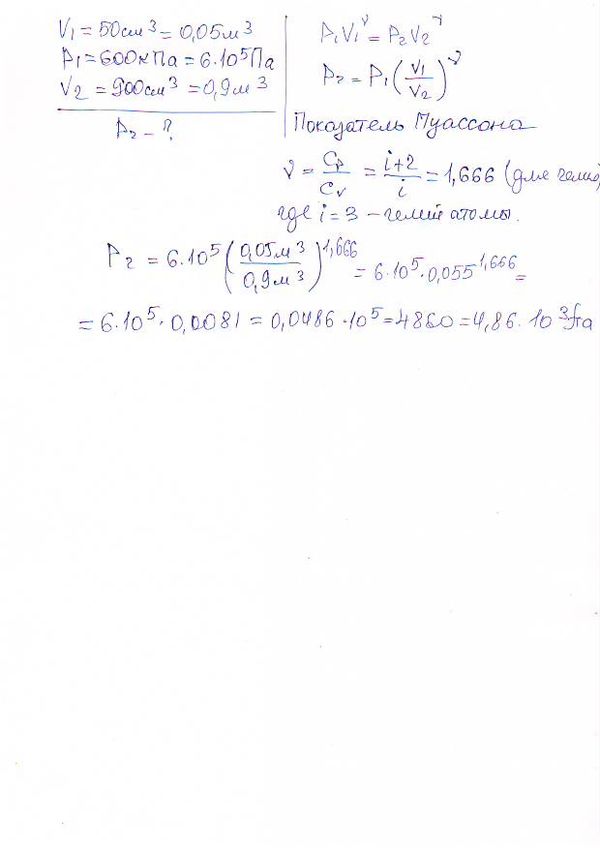 V₁ = 50см³ = 0,05м³
P₁ = 600кПа = 6·10⁵Па
V₂ = 900см³ = 0,9м³
P₂ - ?
P₁V₁^γ = P₂V₂^γ
P₂ = P₁(V₁/V₂)^γ
Показатель Пуассона
γ = Cp/Cv = (i+2)/i = 1,666 (для гелия)
где i = 3 - гелий атомы.
P₂ = 6·10⁵(0,05м³/0,9м³)^1,666 = 6·10⁵·0,055^1,666 =
= 6·10⁵·0,0081 = 0,0486·10⁵ = 4860 = 4,86·10³Па